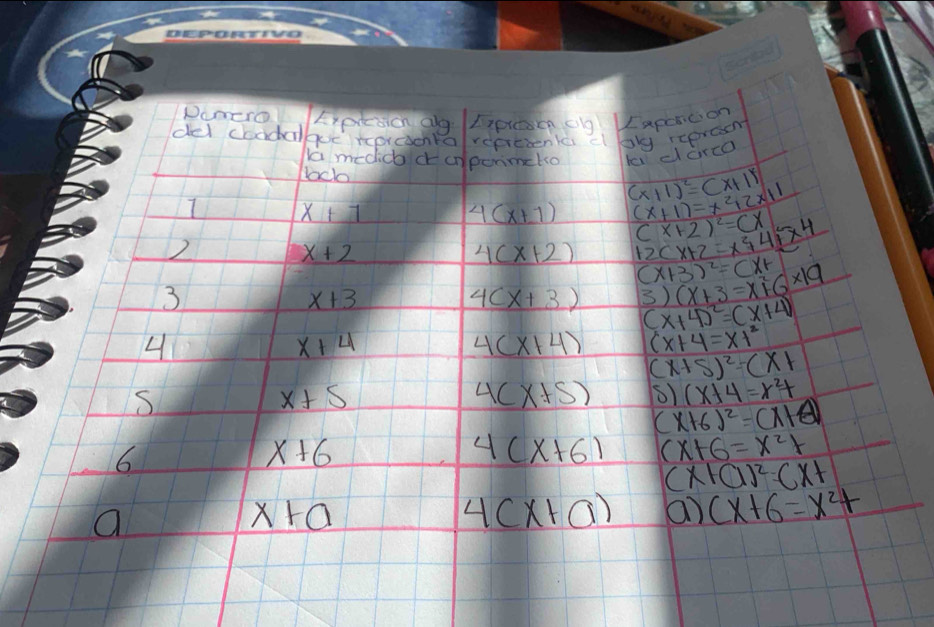 DEPORTIVO
Scribe
Numero Expresion alg. Expresion alg Exposicion
del cuadra que representa representa el alg represen
la medida de un perimetro ta el area
lado
(x+1)²=(x+1)
1 x+1 4(x+1) (x+1)=x²+2x+1
(x+2)²=(x
2 x+2 4(x+2) +2(x+2=x²+4x4
(x+3)²=(x+
3 x+3 4(x+3) 3)(x+3=x+6x+9
(x+4)²=(x+4)
4 x+4 4(x+4) (x+4=x+²
(x+5)²=(x+
5 x+5 4(x+5) 5)(x+4=x²+
(x+6)²=(x+6)
6 x+6 4(x+6) (x+6=x²+
(x+a)²=(x+
a x+a 4(x+a) a)(x+6=x²+